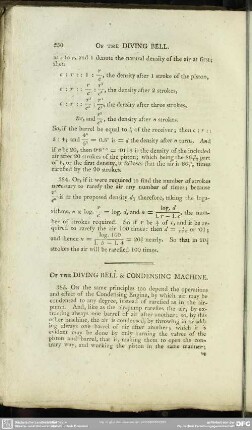 250 OF THE DIVING BELL.
as c to r, and 1 denote the natural density of the air at first;
then
c : r :: 1 : r/c, the density after 1 stroke of the piston,
c : r :: r/c : r²/c², the density after 2 strokes,
c : r :: r²/c² : r³/c³, the density after three strokes,
&c, and rⁿ/cⁿ, the density after n strokes.
So, if the barrel be equal to ¼ of the receiver; then c : r ::
5 : 4; and = d the density after n turns. And
if n be 20, then is the density of the included
air after 20 strokes of the piston; which being the part
of 1, or the first density, it follows that the air is times
rarefied by the 20 strokes.
384. Or, if it were required to find the number of strokes
necessary to rarefy the air any number of times; because
rⁿ/cⁿ is = the proposed density d; therefore, taking the loga-
rithms, n × log. r/c = log. d, and n = log. d / l.r − l.c, the num-
ber of strokes required. So if r be ⅘ of c, and it be re-
quired to rarefy the air 100 times: then d = 1/100 or ·01;
and hence n = log. 100 / l.5 − l.4 = 20⅔ nearly. So that in 20⅔
strokes the air will be rarefied 100 times.
OF THE DIVING BELL & CONDENSING MACHINE.
385. On the same principles too depend the operations
and effect of the Condensing Engine, by which air may be
condensed to any degree, instead of rarefied as in the air-
pump. And, like as the air-pump rarefies the air, by ex-
tracting always one barrel of air after another; so, by this
other machine, the air is condensed, by throwing in or add-
ing always one barrel of air after another; which it is
evident may be done by only turning the valves of the
piston and barrel, that is, making them to open the con-
trary way, and working the piston in the same manner;